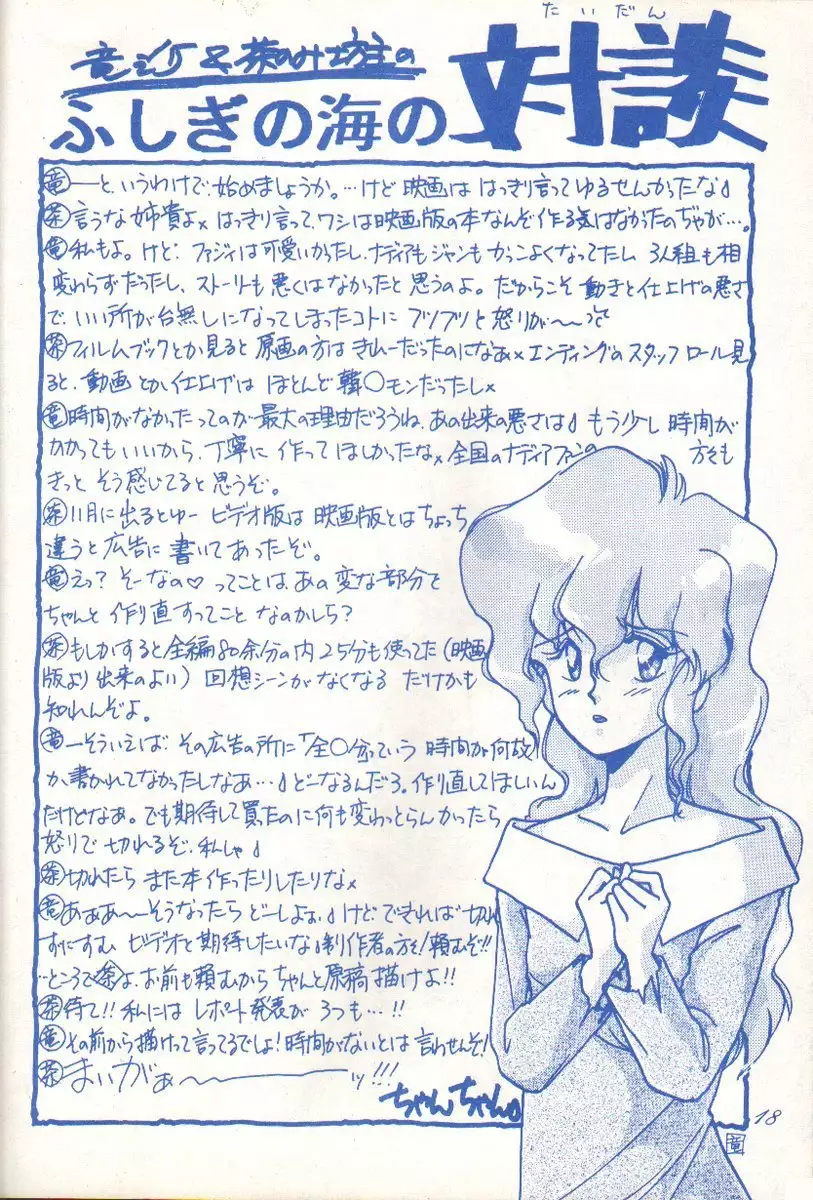 たいだん
竜シケ&茶のみ坊主の
対談
ふしぎの海の
竜―と、いうわけで、始めましょうか。…けど 映画は はっきり言って ゆるせんかったな♪
茶言うな姉貴よ× はっきり言って、ワシは映画版の本なんぞ作る気はなかったのぢゃが…。
竜私もよ。けど、ファジィは可愛いかったし、ナディアもジャンもかっこよくなってたし 3人組も相
変わらずだったし、ストーリーも悪くはなかったと思うのよ。だからこそ 動きと仕上げの悪さ
で、いい所が台無しになってしまったコトに ブツブツと怒りが〜〜
茶フィルムブックとか見ると原画の方はきれーだったのになあ× エンディングのスタッフロール見
ると、動画とか仕上げは ほとんど韓○モンだったし×
竜時間がなかったってのが最大の理由だろうね、あの出来の悪さは♪ もう少し 時間が
かかってもいいから、丁寧に 作って ほしかったな× 全国のナディアファンの 方々も
きっと そう感じてると思うぞ。
茶11月に出るとゆー ビデオ版は 映画版とはちょっち
違うと広告に書いてあったぞ。
竜えっ? そーなの♡ ってことは、あの変な部分を
ちゃんと 作り直すってこと なのかしら?
茶もしかすると全編80余分の内25分も使ってた(映画
版より出来のよい)回想シーンがなくなる だけかも
知れんぞよ。
竜―そういえば、その広告の所に「全○分っていう 時間が何故
か、書かれてなかったしなあ…♪ どーなるんだろ。作り直してほしいん
だけどなあ。でも期待して買ったのに何も変わっとらんかったら
怒りで切れるぞ、私しゃ♪
茶切れたら また本作ったりしたりな×
竜あぁあ〜〜そうなったら どーしよぉ♪ けど、できれば 切れ
ずにすむ ビデオを期待したいな♪ 制作者の方々!頼むぞ!!
…ところで茶よ、お前も頼むからちゃんと原稿描けよ!!
茶待て!! 私には レポート発表が 3つも…!!
竜その前から描けって言ってるでしょ!時間がないとは 言わせんぞ!
茶まいがぁ〜――――ッ!!!
ちゃんちゃん♪
18
竜